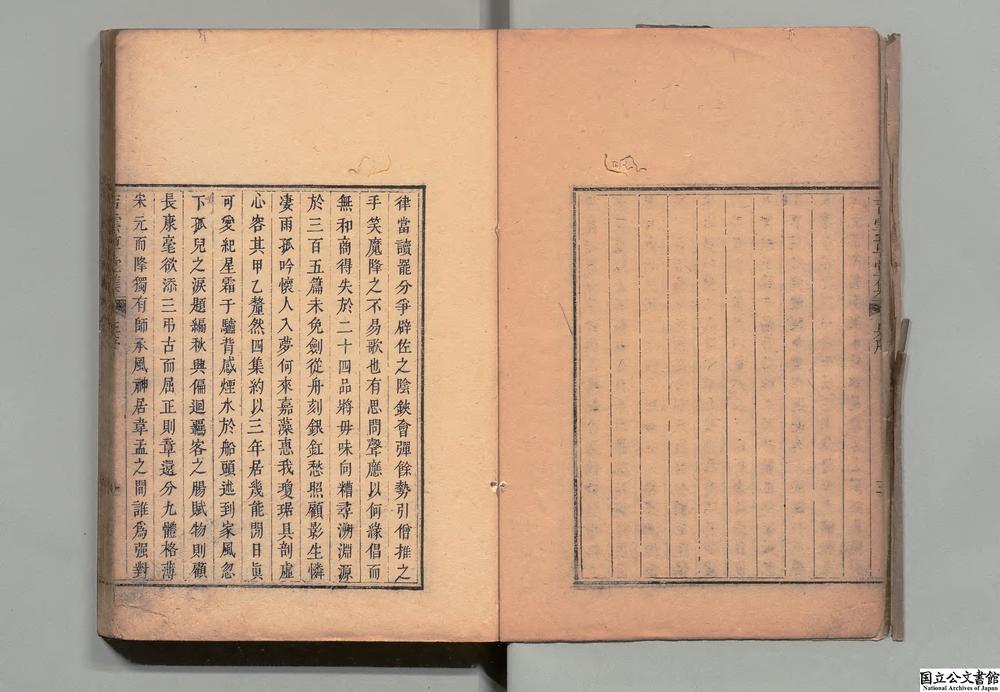 律當讀罷分爭辟佐之陰鋏會彈餘勢引僧推之
手笑魔降之不易歌也有思問聲應以何緣倡而
無和商得失於二十四品將毋味向糟尋溯淵源
於三百五篇未免劍從舟刻銀釭愁照顧影生憐
凄雨孤吟懷人入夢何來嘉藻惠我瓊琚具剖虛
心容其甲乙釐然四集約以三年居幾能閒日眞
可愛紀星霜于驢背感煙水於船頭述到家風忽
下孤兒之淚題編秋興偏迴羈客之腸賦物則顧
長康毫欲添三弔古而屈正則章還分九體格薄
宋元而降獨有師承風神居韋孟之間誰爲强對
国立公文書館
National Archives of Japan